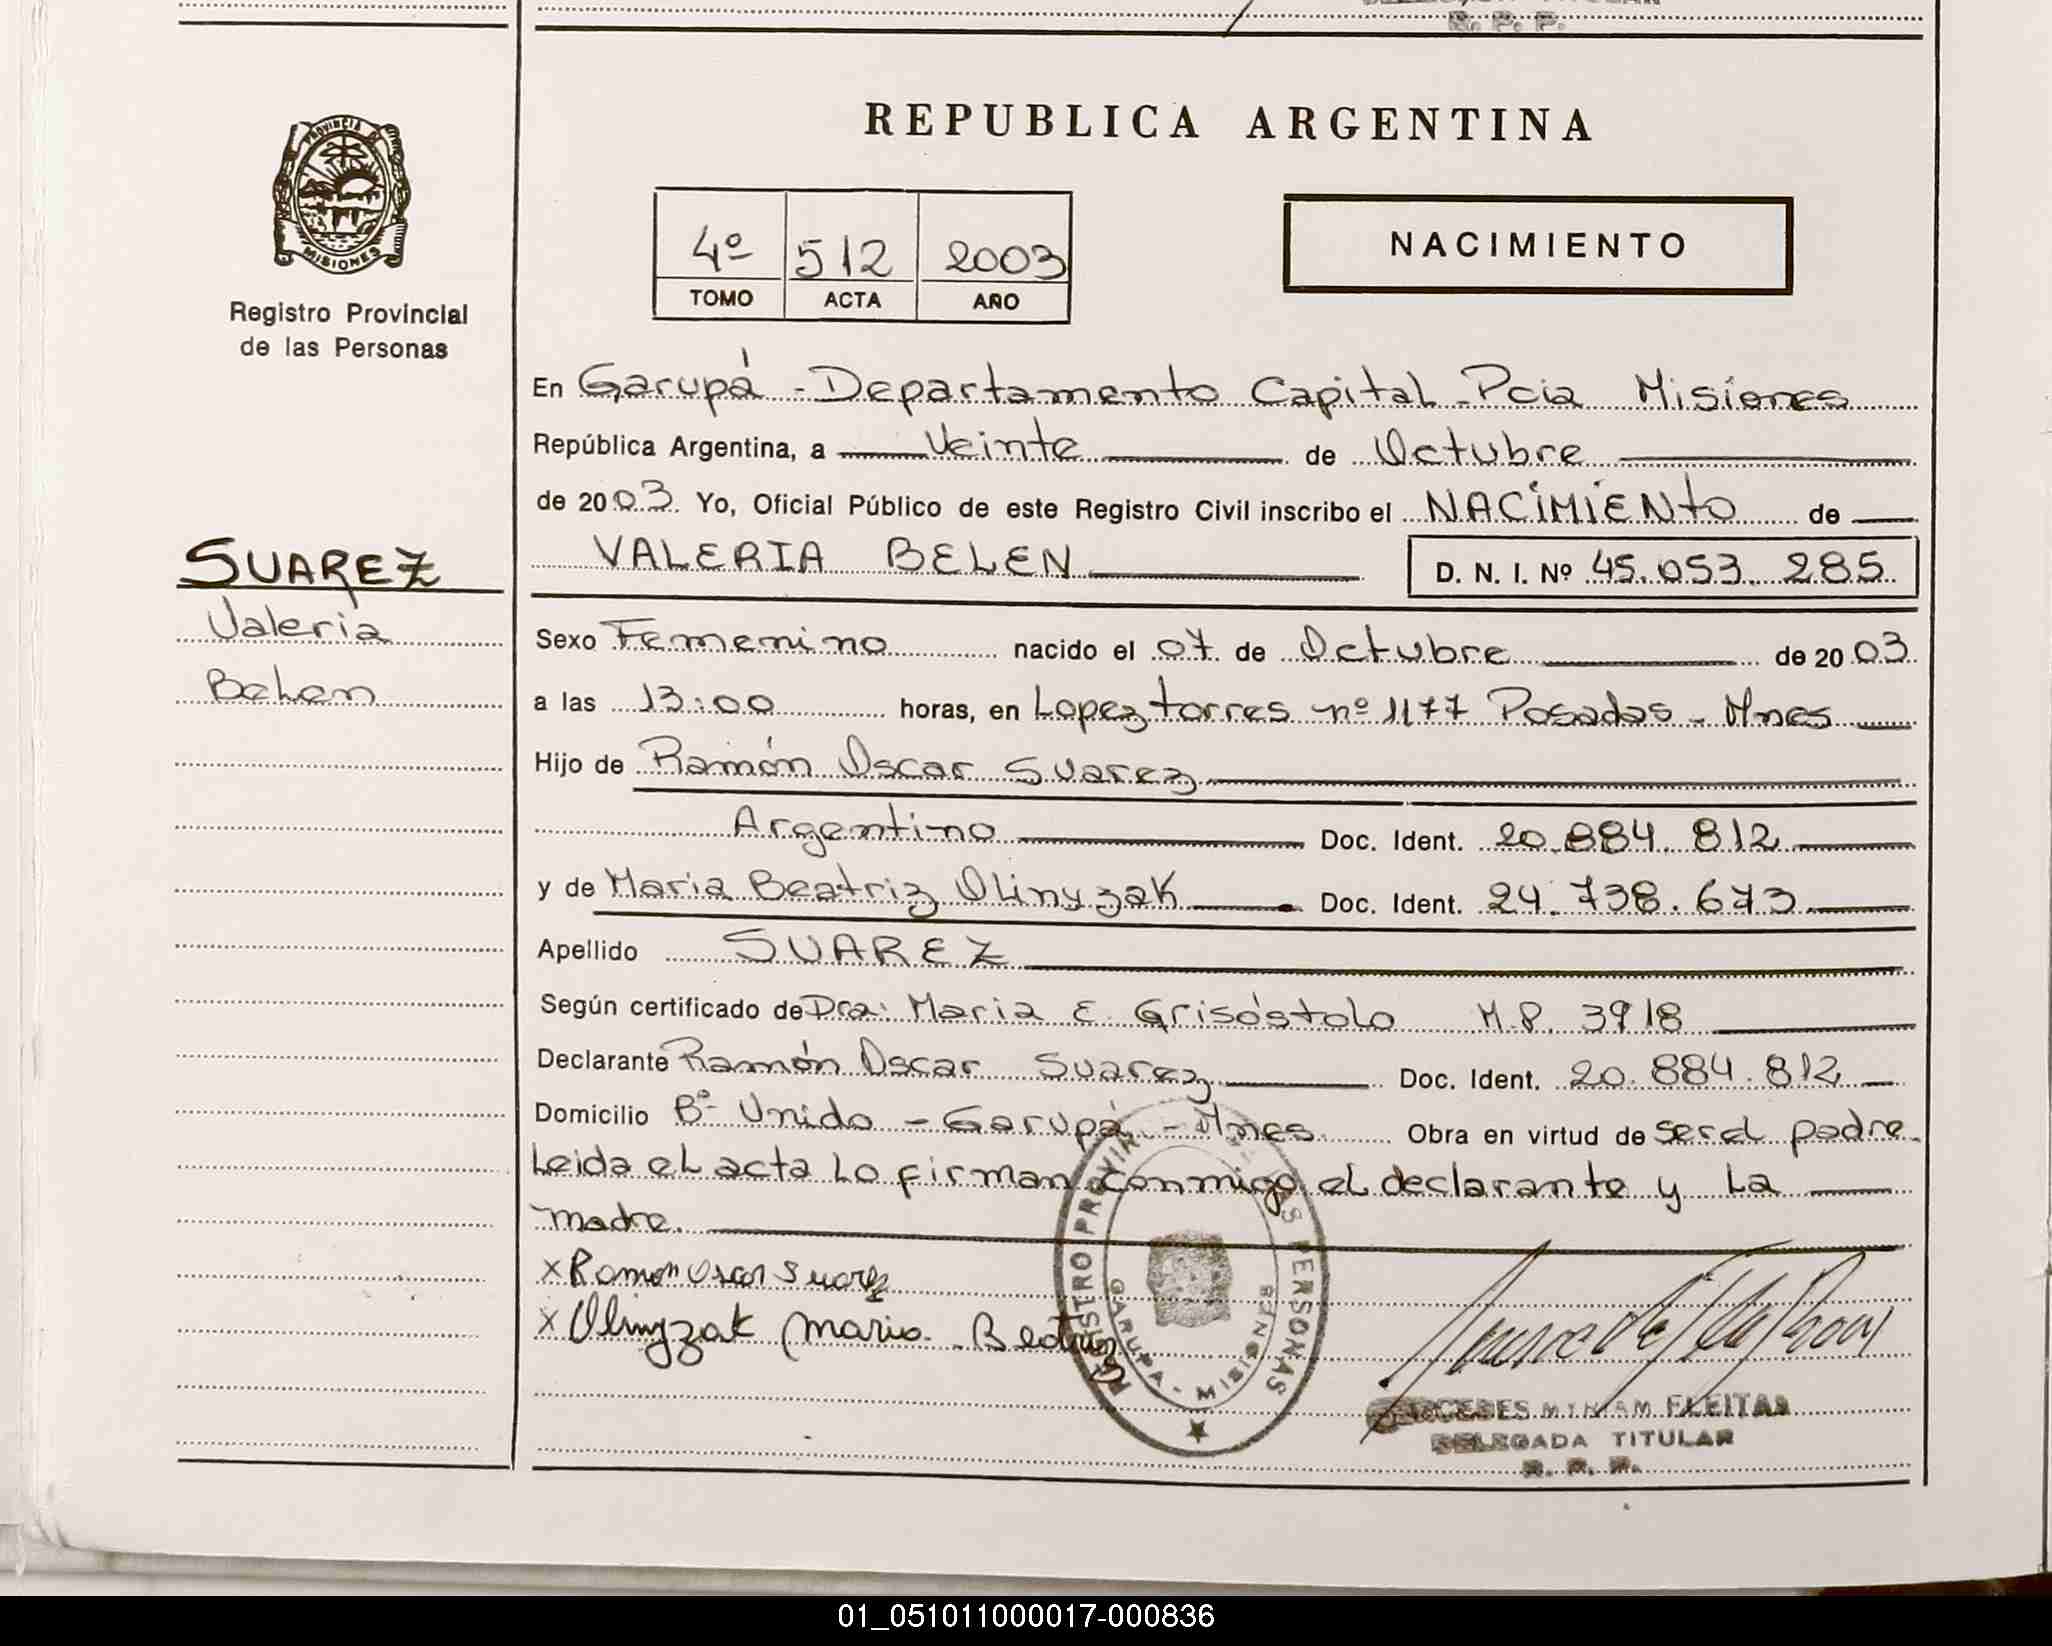 R. P. P.
PROVINCIA DE
MISIONES
Registro Provincial
de las Personas
REPUBLICA ARGENTINA
4º 512 2003
TOMO ACTA AÑO
NACIMIENTO
SUAREZ
Valeria
Belen
En Garupá - Departamento Capital - Pcia Misiones
República Argentina, a Veinte de Octubre
de 2003 Yo, Oficial Público de este Registro Civil inscribo el NACIMIENTO de
VALERIA BELEN D. N. I. Nº 45.053.285
Sexo Femenino nacido el 07 de Octubre de 2003
a las 13:00 horas, en Lopez torres nº 1177 Posadas - Mnes
Hijo de Ramón Oscar Suarez
Argentino Doc. Ident. 20.884.812
y de Maria Beatriz Olinyzak Doc. Ident. 24.738.673
Apellido SUAREZ
Según certificado de Dra: Maria E. Grisóstolo M.P. 3918
Declarante Ramón Oscar Suarez Doc. Ident. 20.884.812
Domicilio Bº Unido - Garupá - Mnes Obra en virtud de ser el padre.
Leida el acta lo firman conmigo el declarante y la
madre.
x Ramon Oscar Suarez
x Olinyzak Maria Beatriz
REGISTRO PROVINCIAL DE LAS PERSONAS
GARUPA - MISIONES
MERCEDES MYRIAM FLEITAS
DELEGADA TITULAR
R. P. P.
01_051011000017-000836